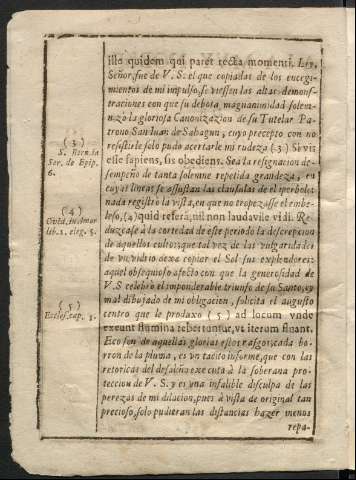 illa quidem qui paret recta momenti. Ley,
Señor, fue de V. S. el que copiadas de los encogi-
mientos de mi impulso, se viessen las altas demons-
traciones con que su debota, magnanimidad solem-
nizò la gloriosa Canonizacion de su Tutelar Pa-
trono San Iuan de Sahagun, cuyo precepto con no
resistirle solo pudo acertarle mi rudeza (3) Si vis
esse sapiens, sis obediens. Sea la resignacion de-
sempeño de tanta solemne repetida grandeza, en
cuyas lineas se assustan las clausulas de el iperbole;
nada registrò la vista, en que no tropezasse el embe-
leso, (4) quid referã, nil non laudavile vidi. Re-
duzcase à la cortedad de este periodo la descrepcion
de aquellos cultos; que tal vez de las vulgaridades
de vn vidrio dexa copiar el Sol sus explendores;
aquel obsequioso afecto con que la generosidad de
V. S celebrò el imponderable triunfo de su Santo, ey
mal dibujado de mi obligacion, solicita el augusto
centro que le produxo (5) ad locum vnde
exeunt flumina rebertuntur, vt iterum fluant.
Eco son de aquellas glorias estos rasgos; cada bo-
rron de la pluma, es vn tacito informe, que con las
retoricas del desaliño executa à la soberana pro-
teccion de V. S. y es vna infalible disculpa de las
perezas de mi dilacion, pues à vista de original tan
precioso, solo pudieran las distancias hazer menos
repa-
(3)
S. Bern. in
Ser. de Epip.
6.
(4)
Ovid. in Amor
lib. 2. eleg. 5.
(5)
Eccles. cap. 1.